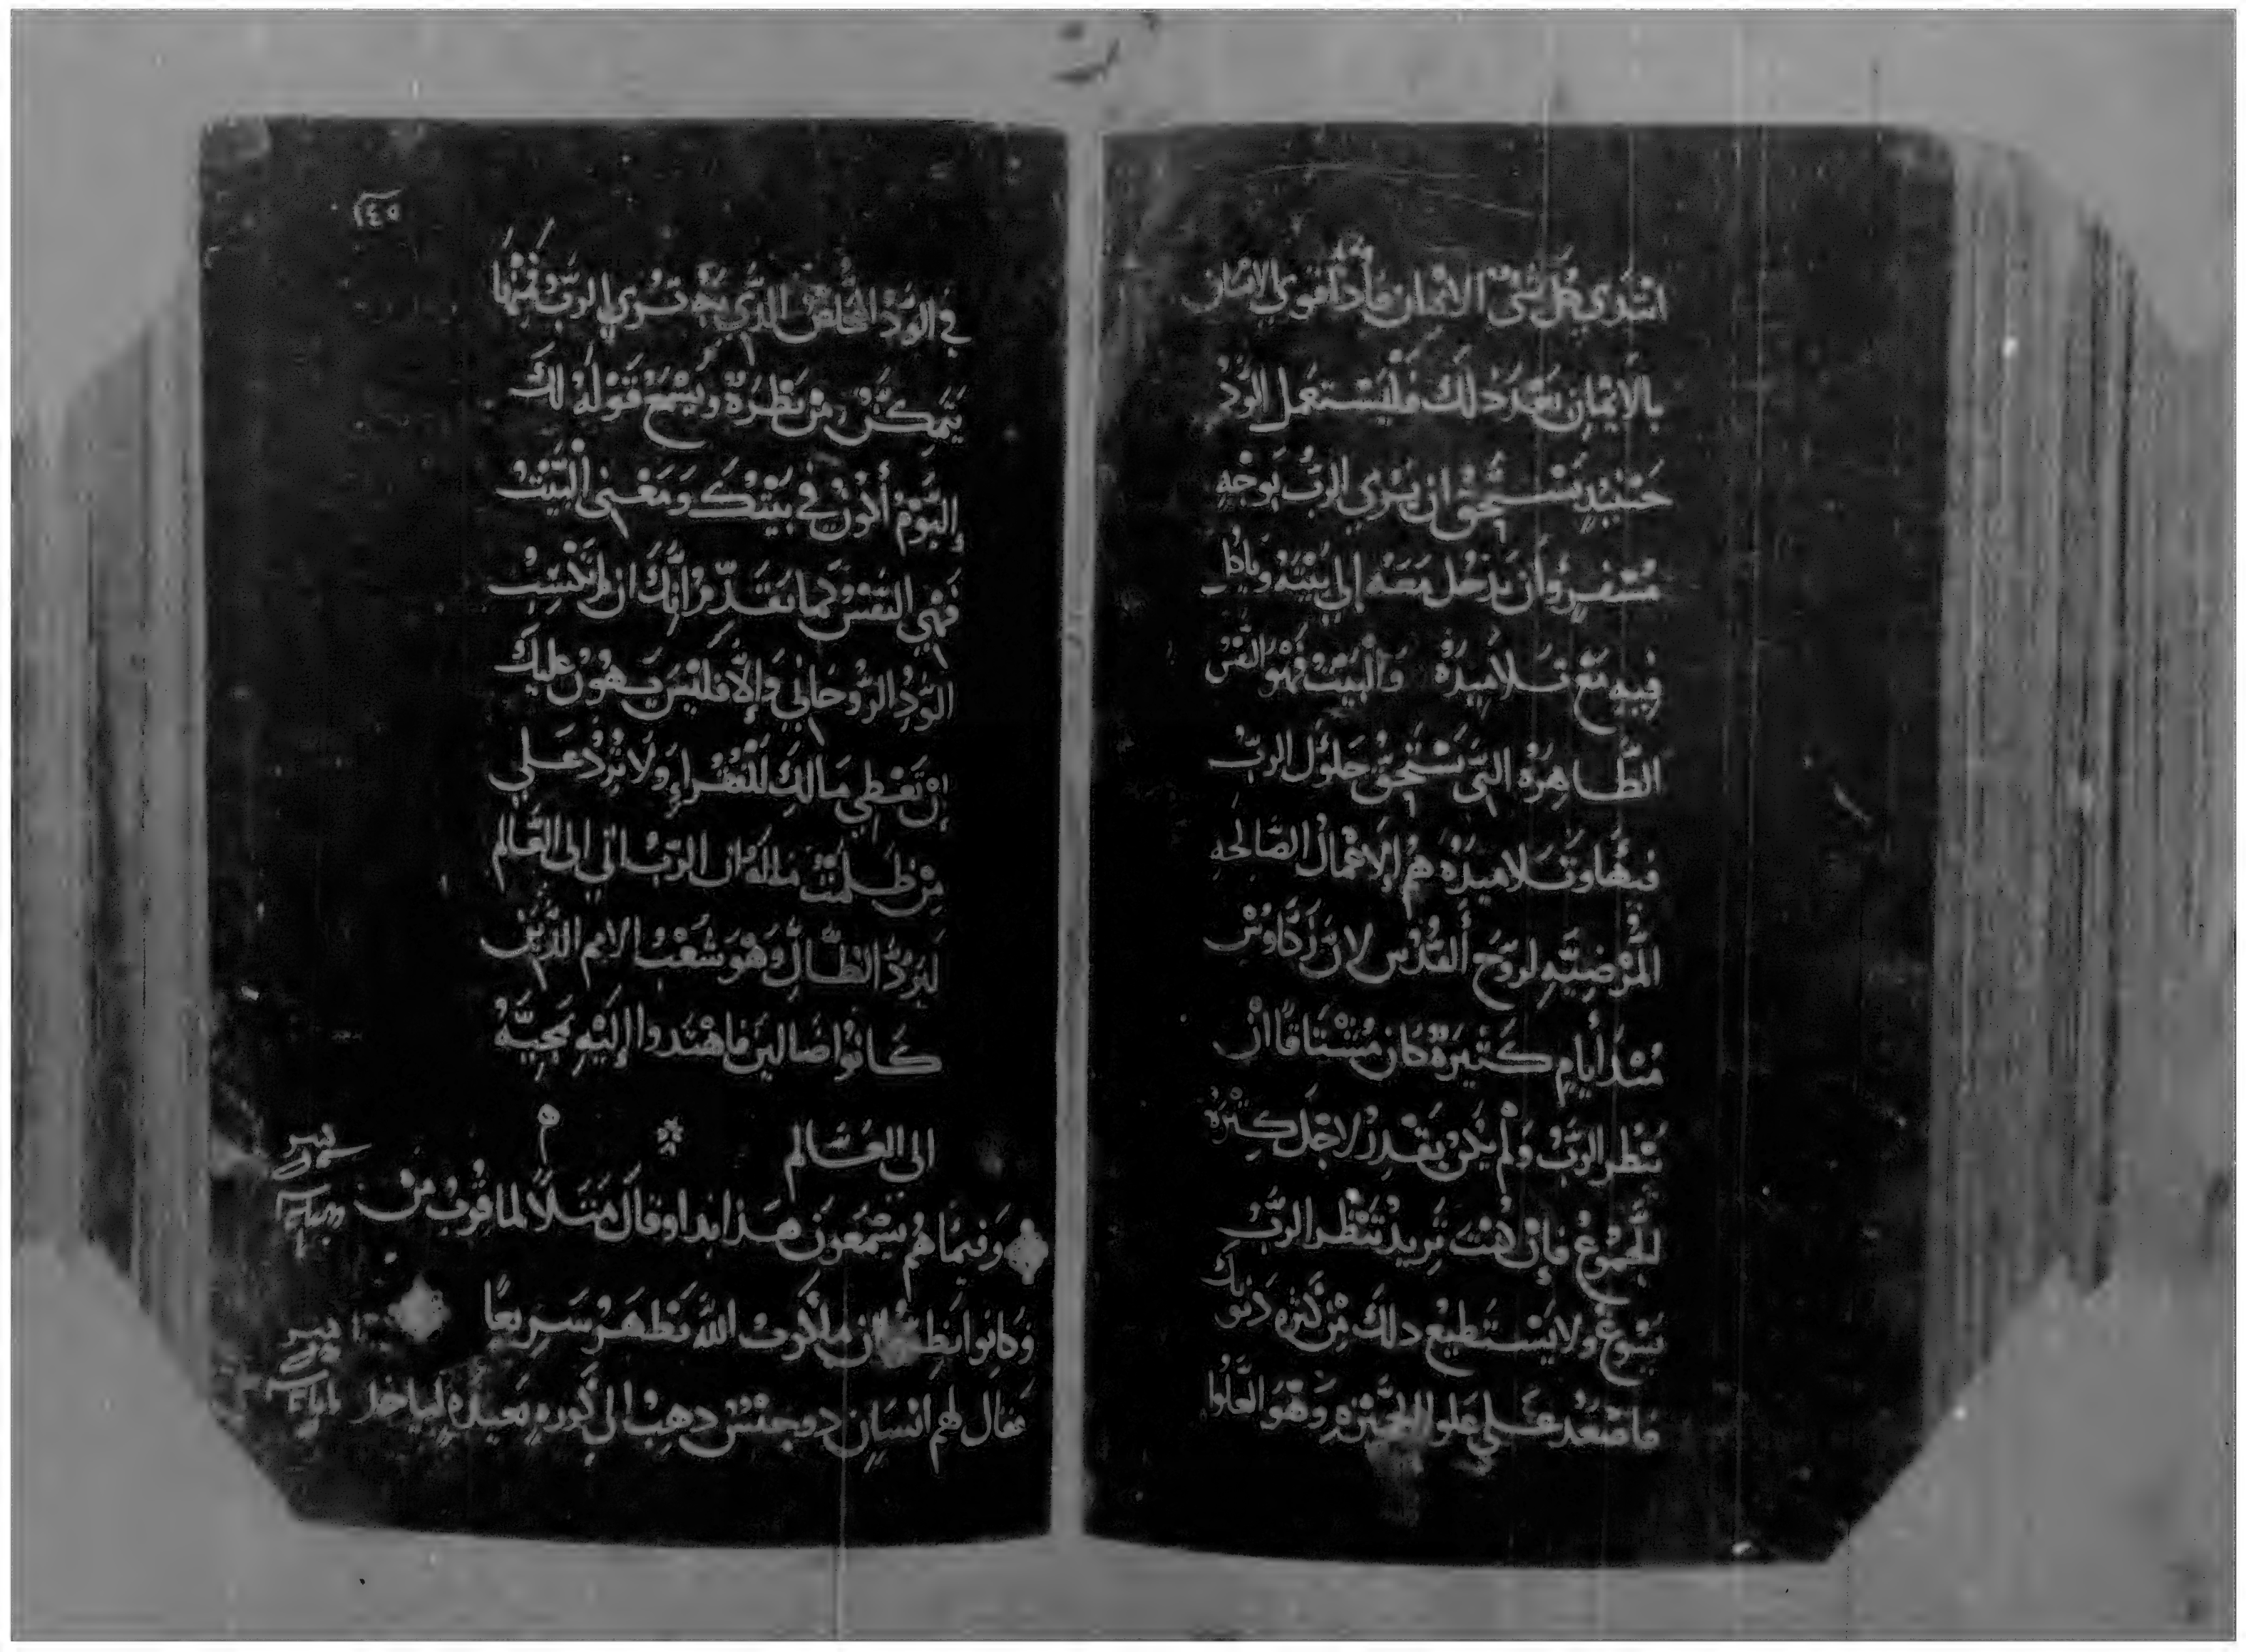 اشتدي كل شي الايمان فادا قوي الايمان
بالايمان بعد دلك وليستعمل الود
حينيد يستحق ان يري الرب بوجه
مسفر وان يدخل معه إلي بيته وياكل
فيه مع تلاميده والبيت فهو النفس
الطاهره التي يستحق حلول الرب
فيها وتلاميده هم الاعمال الصالحه
المرضيه لروح القدس لان زكاوس
مند أيام كتيرة كان مشتاقا ان
ينظر الرب ولم يكن يقدر لاجل كتره
الجموع فإن كنت تريد تنظر الرب
يسوع ولا يستطيع دلك من كتره دنوبك
فاصعد علي علو الجميزه وهو العلو
١٤٥
في الود الخالص الدي به تري الرب فمنها
يتمكن من نظره ويسمع قوله لك
اليوم أكون في بيتك ومعني البيت
فهي النفس كما تقدم انك ان لم تكتسب
الود الروحاني والا فليس يهون عليك
إن تعطي مالك للفقراء ولا ترد علي
من ظلمت ماله ان الرب اتي الي العالم
ليرد الضال وهو شعب الامم الدين
كانوا ضالين فاهتدوا إليه بمجيه
الي العالم
وفيما هم يسمعون هدا ابدا وقال متلا لما قرب من
وكانوا يظنون ان ملكوت الله تظهر سريعا
فقال لهم انسان دو جنس دهب الي كوره بعيده لياخد